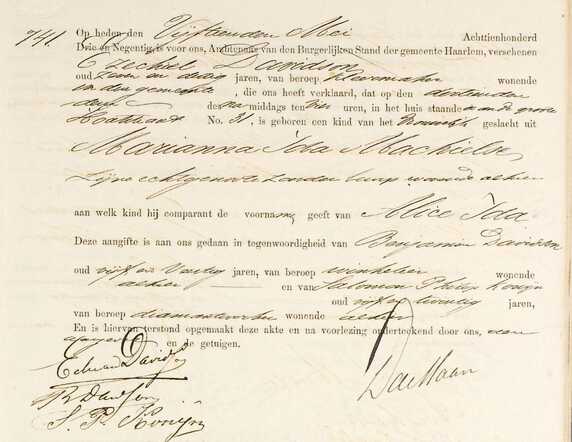 741. Op heden den Vijftienden Mei Achttienhonderd
Drie en Negentig, is voor ons, Ambtenaar van den Burgerlijken Stand der gemeente Haarlem, verschenen
Ezechiel Davidson
oud zeven en dertig jaren, van beroep kleermaker wonende
in den gemeente, die ons heeft verklaard, dat op den dertienden
dezer des na middags ten vier uren, in het huis staande aan de groote
Houtstraat No. 31, is geboren een kind van het Vrouwelijk geslacht uit
Marianna Ida Machielse
zijne echtgenoote zonder beroep wonende alhier
aan welk kind hij comparant de voornamen geeft van Alice Ida
Deze aangifte is aan ons gedaan in tegenwoordigheid van Benjamin Davidson
oud vijf en Veertig jaren, van beroep winkelier wonende
alhier en van Salomon Philip Konijn
oud vijf en twintig jaren,
van beroep diamantwerker wonende alhier
En is hiervan terstond opgemaakt deze akte en na voorlezing onderteekend door ons, den
aangever en de getuigen.
Davidson
B. Davidson
S. P. Konijn